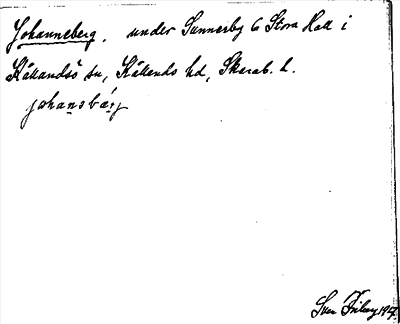 Johanneberg. under Sunnerby G Stora Hall i
Kållandsö sn, Kållands hd, Skarab. l.
johansbärj
Sven Friberg 1927